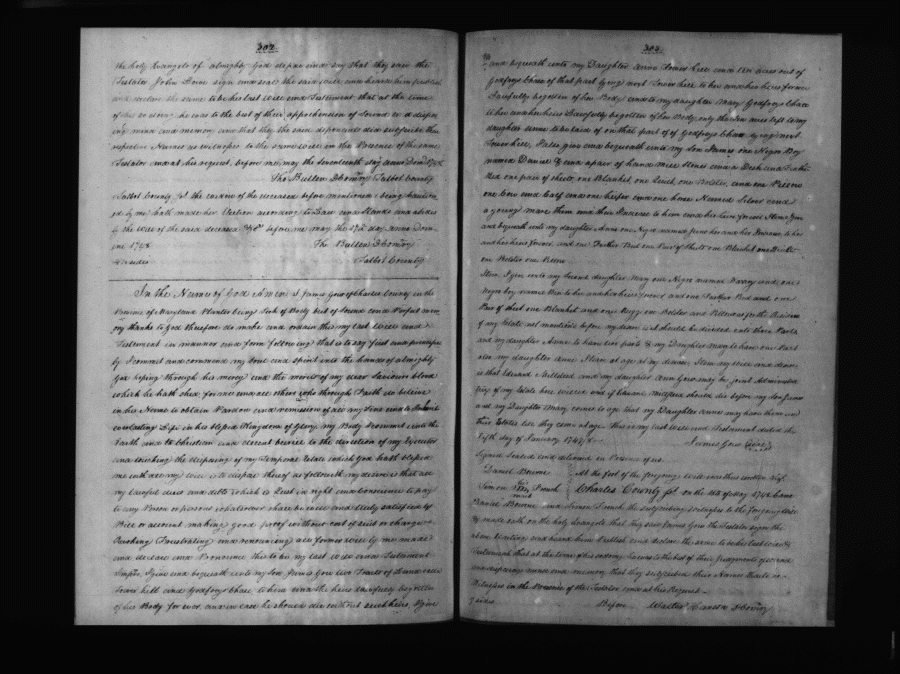 302
the holy Evangels of almighty God depose and say that they saw the
Testator John sign and seal the said will and heard him publish
and declare the same to be his last will and Testament that at the time
of his so doing he was to the best of their apprehension of sound and dispos
ing mind and memory and that they the said deponents did subscribe their
respective Names as witnesses to the same will in the Presence of the same
Testator and at his request, before me may the Seventeenth day anno Dom
Tho Bullen DComry Talbot County
Talbot County the of the deceased before mentioned being
by me hath made her Election according to Law and Stands and abides
to the will of the said deceased before me may the 17th day anno Dom
ini 1748
Tho Bullen DComry
Talbot County
In the Name of God Amen I James Gow of Charles County in the
Province of Maryland Planter being Sick of Body but of Sound and Perfect mem
ory thanks to God therefore do make and ordain this my last will and
Testament in manner and form following that is to say first and principally
I commit and commend my Soul and Spirit into the hands of almighty
God hoping through his mercy and the merits of my dear Saviour blood
which he hath shed for me and all others who through Faith do believe
in his Name to obtain Pardon and remission of all my Sins and to
everlasting Life in his blessed Kingdom of Glory my Body I commit unto the
Earth and to Christian and decent burial to the direction of my Executor
and touching the disposing of my Temporal Estate which God hath blessed
me with all my will is to dispose thereof as followeth my desire is that all
my lawful dues and debts which is Just in right and Conscience to pay
to any Person or persons whatsoever shall be and duly satisfied by
Bill or account making good proof without cost of suit or charge
Revoking Frustrating and renouncing all former wills by me made
and declare and Pronounce this to be my last will and Testament
Imprs. I give and bequeath unto my Son James Gow two Tracts of Land called
Tower hill and Godfrys Chase to him and the heirs Lawfully begotten
of his Body for ever, and in case he should die without such heirs, I give
303
and bequeath unto my Daughter Anne Tower hill and ten acres out of
Godfrys Chase of that part lying next Tower hill to her and her heirs forever
Lawfully begotten of her Body and to my daughter Mary Godfrys Chase
to her and her heirs Lawfully begotten of her Body only the ten acres left to my
daughter Anne to be laid of on that part of Godfrys Chase lying next
Tower hill, I also give and bequeath unto my Son James one Negro Boy
named Daniel & and a pair of hand mill Stones and a Desk and Feather
Bed one pair of sheets, one Blanket, one Quilt, one Bolster, and one Pillow
one Cow and Calf and one heifer and one horse Named Silver and
a young mare them and their Increase to him and her heirs forever Item I give
and bequeath unto my daughter Anne one Negro named and her Increase to her
and her heirs forever, and one Feather Bed one Pair of Sheets one Blanket one Quilt
one Bolster one Pillow
Item I give unto my Second daughter Mary one Negro named and one
Negro boy named Ben to her and her heirs forever and one Feather Bed and one
Pair of sheet one Blanket and one Rugg one Bolster and Pillow and for the Residue
of my Estate not mentioned before my desire is it should be divided into three Parts
and my daughter Anne to have two parts & my Daughter Mary to have one Part
also my daughter Anne I leave at age at my decease. Item my will and desire
is that Edward Millstead and my daughter Ann Gow may be joint Administra
tors of my Estate here willed and if Edward Millstead should die before my Son James
and my Daughter Mary comes to age that my Daughter Anne may have them and
their Estates till they come at age. This is my last will and Testament dated this
Fifth day of January 174
James Gow (Seal)
Signed Sealed and delivered in Presence of us
Daniel Bowne
Simon his mark French
At the foot of the foregoing will was thus written Vizt.
Charles County Ss. on the 14 of May 1748 Came
Daniel Bowne and Simon French the subscribing witnesses to the foregoing Will
& made oath on the holy Evangels that they saw James Gow the Testator sign the
above Writing and heard him Publish and declare the same to be his last will &
Testament that at the time of his so doing he was to the best of their Judgments of sound
and disposing mind and memory that they subscribed their Names thereto as
Witnesses in the Presence of the Testator and at his Request
Before Walter Hanson DComry